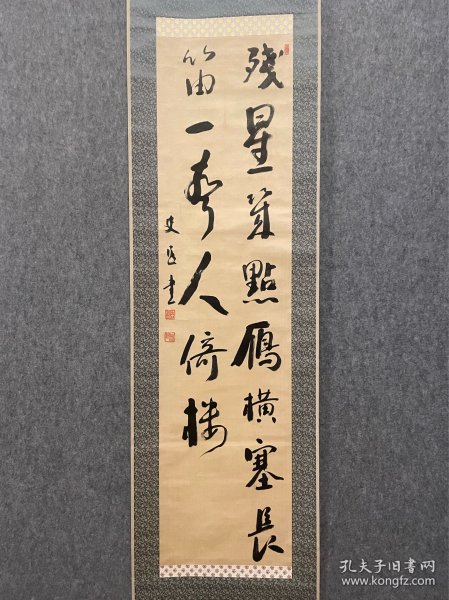 残星笑點鴈橫塞長
笛一聲人倚楼
書
孔夫子旧书网
www.kongfz.com